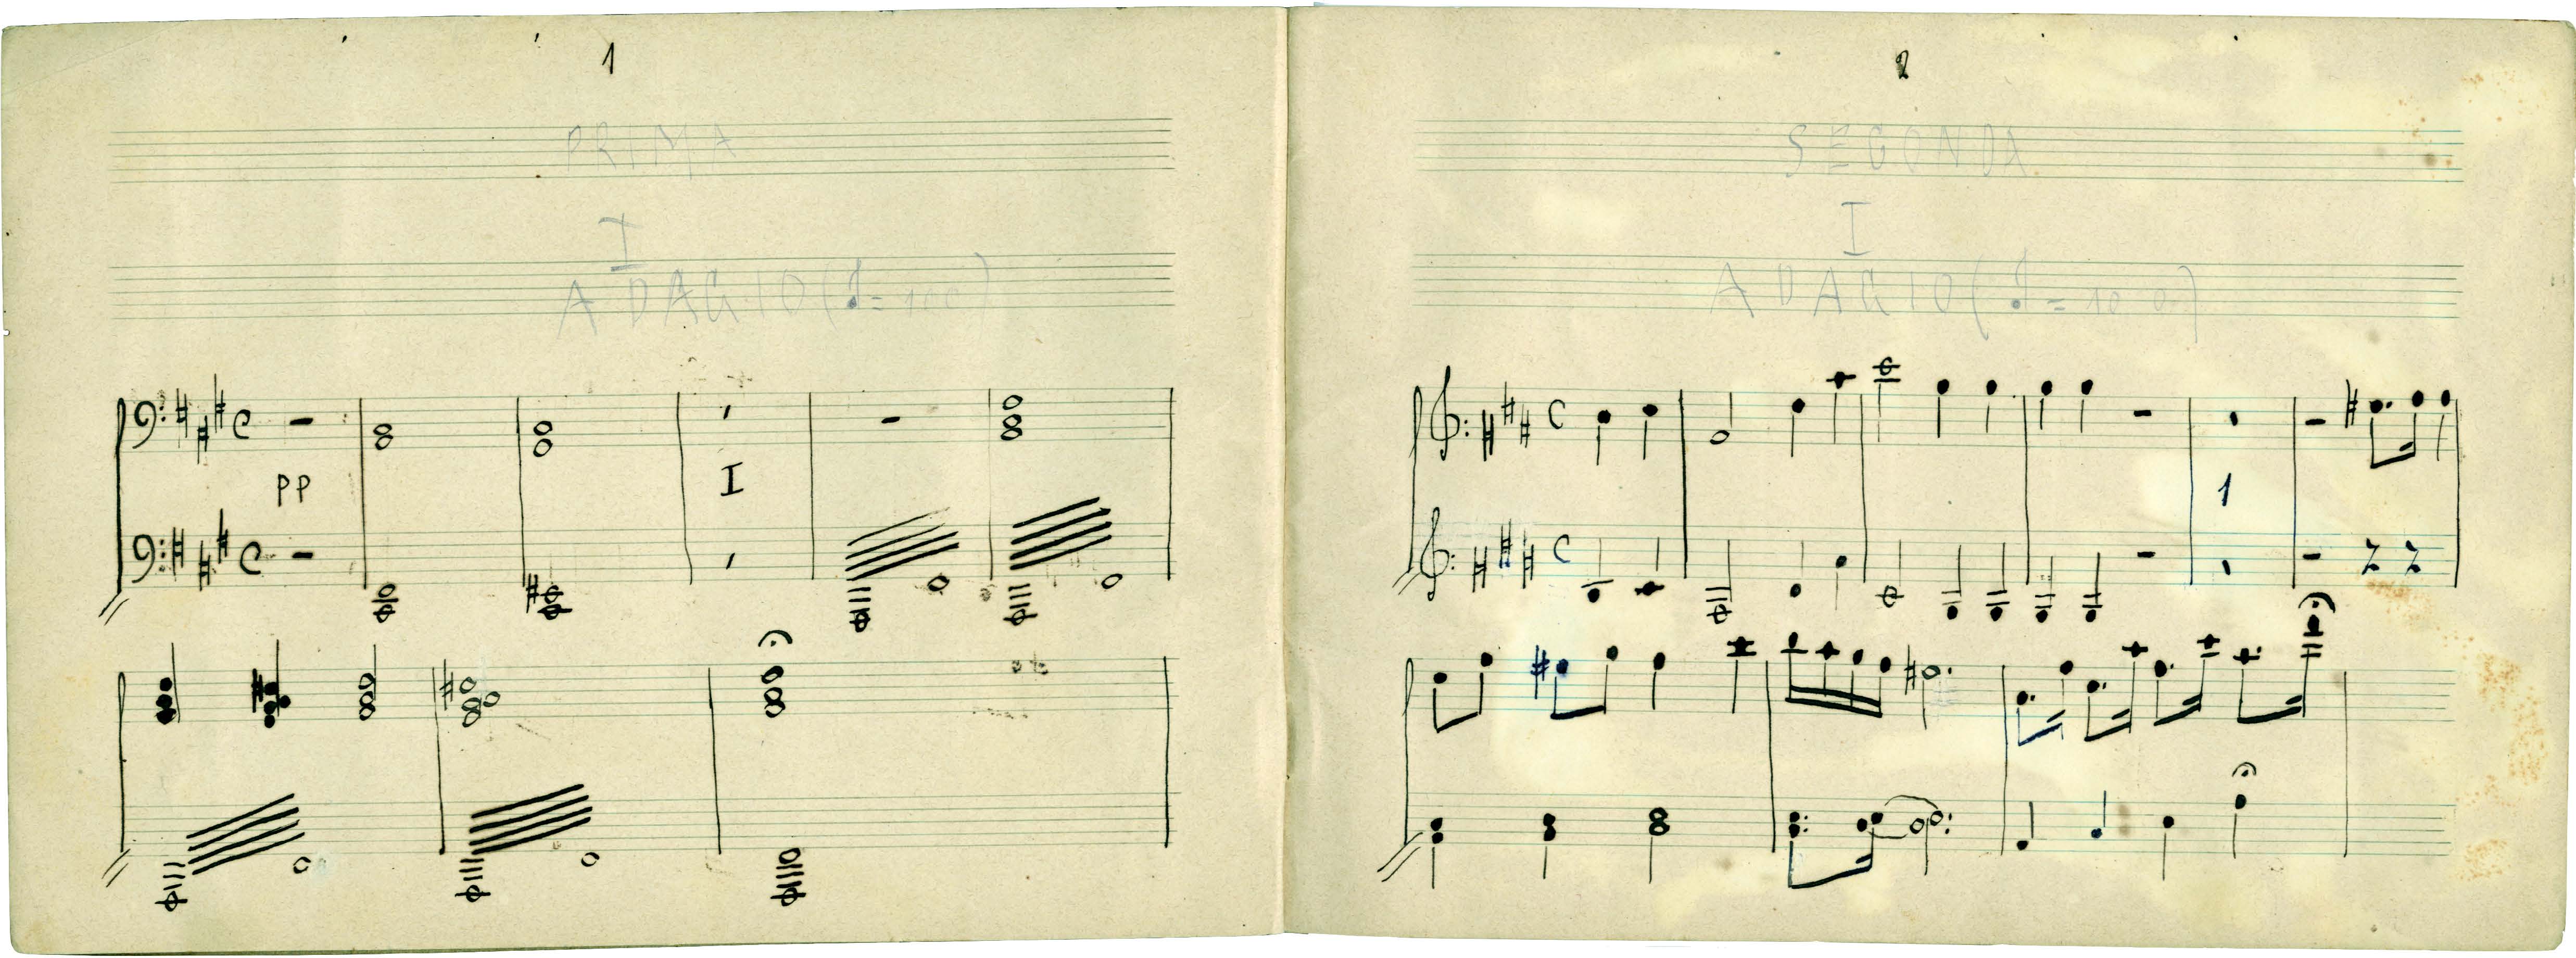 1
PRIMA
I
ADAGIO (♩= 100)
pp
I
2
SECONDA
I
ADAGIO (♩= 100)
1